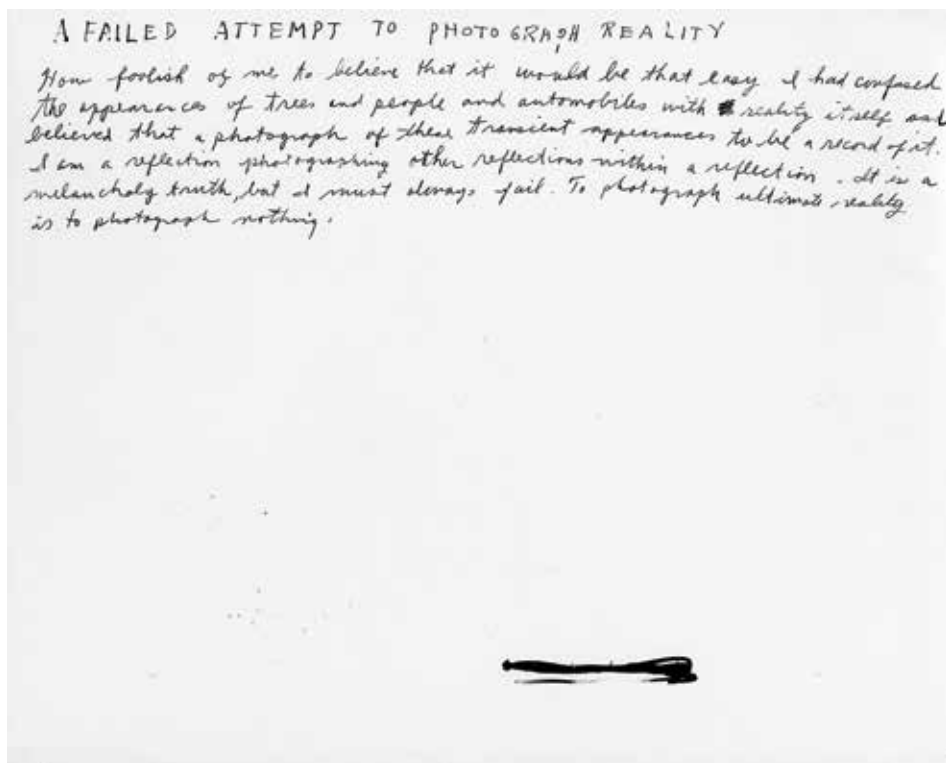 A FAILED ATTEMPT TO PHOTOGRAPH REALITY
How foolish of me to believe that it would be that easy. I had confused
the appearances of trees and people and automobiles with reality itself and
believed that a photograph of these transient appearances to be a record of it.
I am a reflection photographing other reflections within a reflection. It is a
melancholy truth, but I must always fail. To photograph ultimate reality
is to photograph nothing.